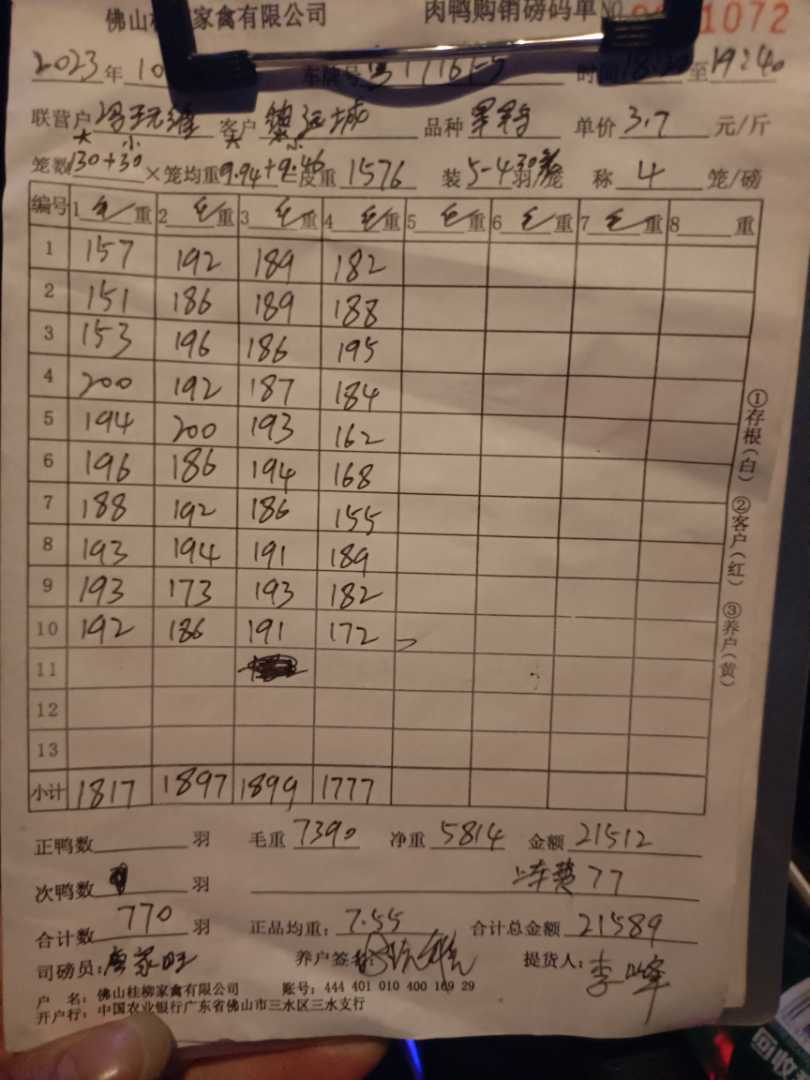 佛山桂柳家禽有限公司 肉鸭购销磅码单 NO. 1072
2023年10 车牌号 时间 至19:40
联营户 客户 品种 单价3.7元/斤
大 小 大 小
笼数130+30×笼均重9.94+9.46皮重1576 装5-4羽/笼 称4笼/磅
编号 1毛重 2毛重 3毛重 4毛重 5毛重 6毛重 7毛重 8重
1 157 192 189 182
2 151 186 189 188
3 153 196 186 195
4 200 192 187 184
5 194 200 193 162
6 196 186 194 168
7 188 192 186 155
8 193 194 191 189
9 193 173 193 182
10 192 186 191 172
11
12
13
小计 1817 1897 1899 1777
①存根(白) ②客户(红) ③养户(黄)
正鸭数 羽 毛重7390 净重5814 金额21512
次鸭数 羽 上车费77
合计数770羽 正品均重:7.55 合计总金额21589
司磅员:唐家旺 养户签名 提货人:李峰
户 名:佛山桂柳家禽有限公司 账号:444 401 010 400 169 29
开户行:中国农业银行广东省佛山市三水区三水支行
回收